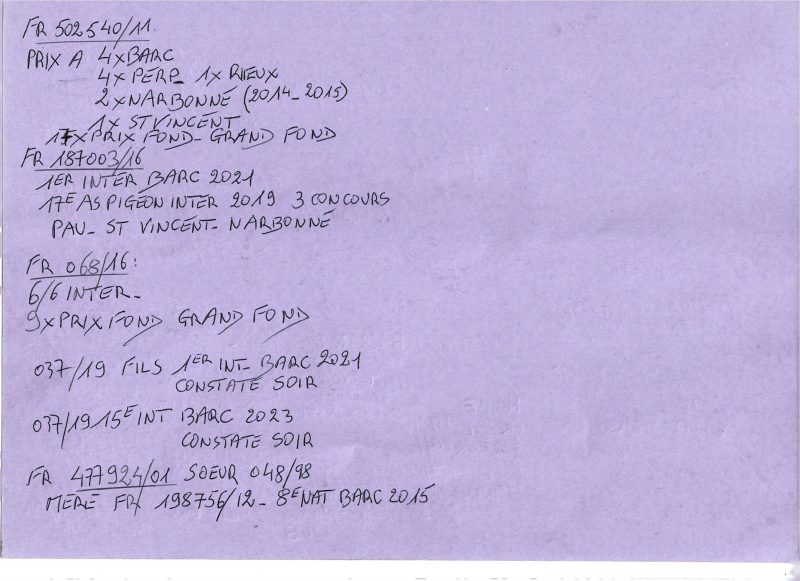 FR 502540/11.
PRIX A 4xBARC
4x PERP_ 1x RIEUX
2xNARBONNE (2014_2015)
1x ST VINCENT
17xPRIX FOND_ GRAND FOND
FR 187003/16
1ER INTER BARC 2021
17E AS PIGEON INTER 2019 3 CONCOURS
PAU_ ST VINCENT_ NARBONNE
FR 068/16:
6/6 INTER_
9xPRIX FOND GRAND FOND
037/19 FILS 1ER INT_ BARC 2021
CONSTATE SOIR
037/19 15E INT BARC 2023
CONSTATE SOIR
FR 477924/01 SOEUR 048/98
MERE FR 198756/12_ 8E NAT BARC 2015